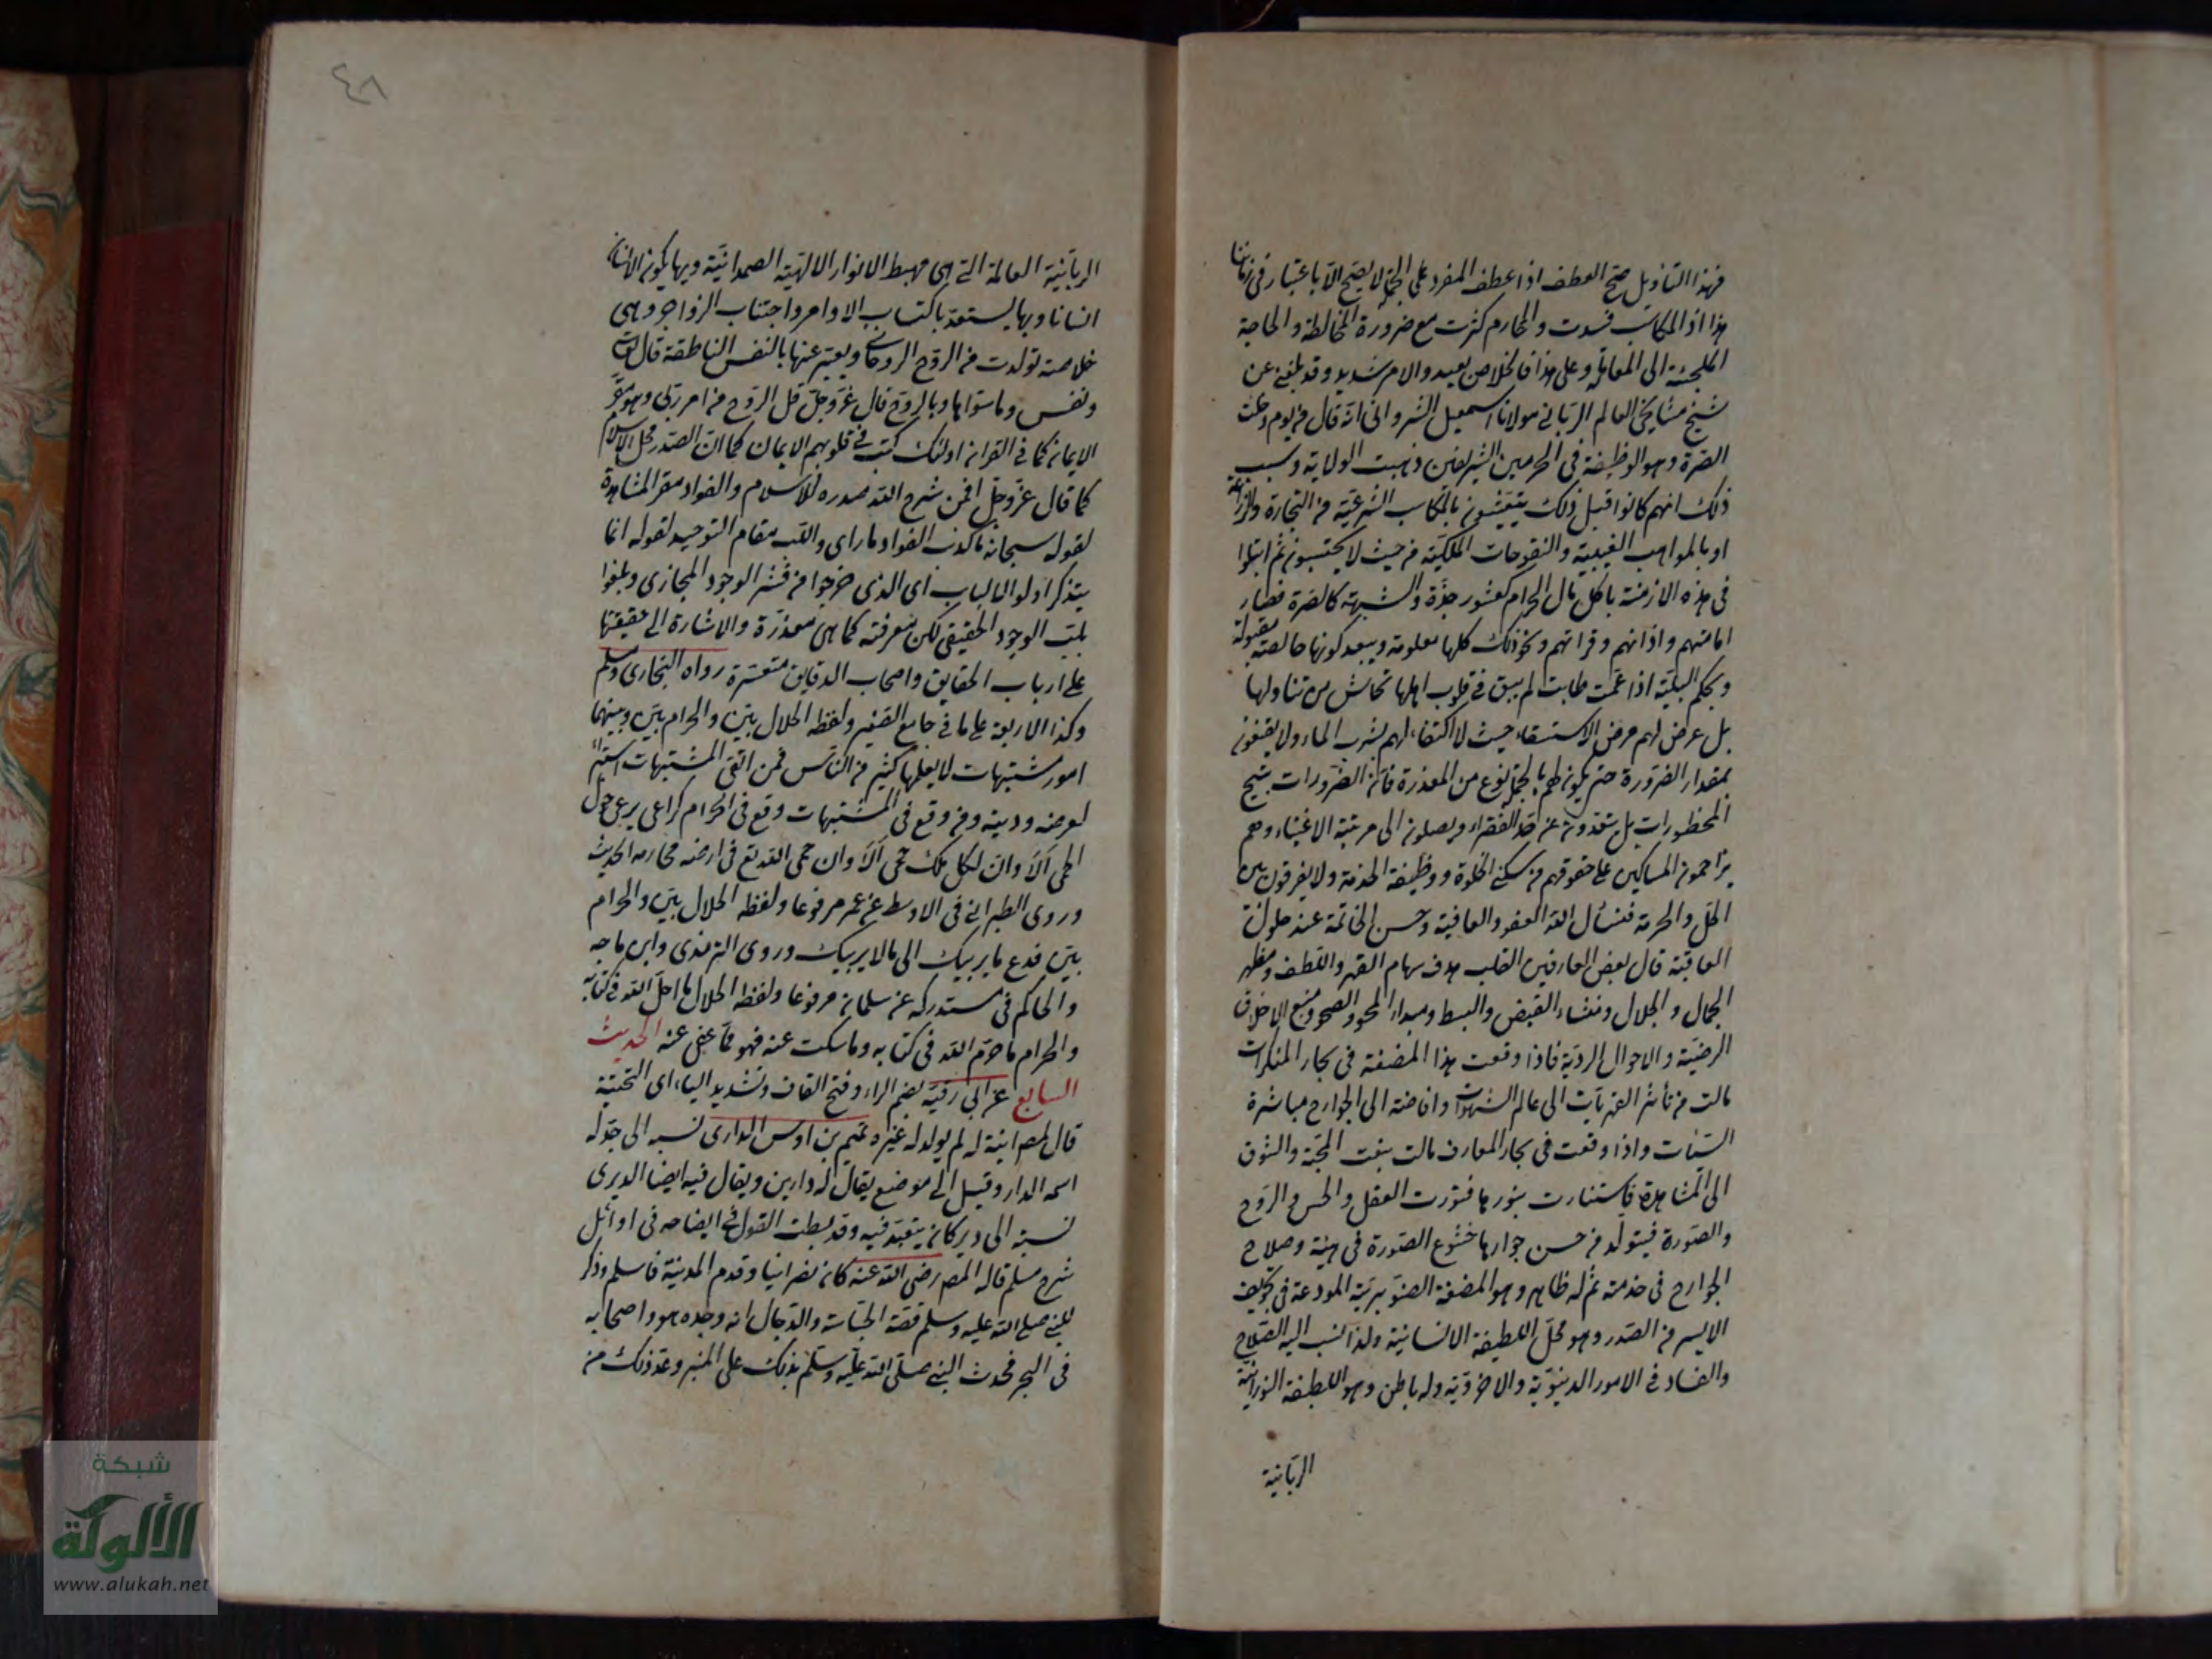 فبهذا التاويل صح العطف اذا عطف المفرد على الجمل لا يصح الا باعتبار في زماننا
هذا اذ المكاسب فسدت والمحارم كثرت مع ضرورة المخالطة والحاجة
الملجئة الى المعاملة وعلى هذا فالخلاص بعيد والامر شديد وقد بلغني عن
شيخ مشايخي العالم الرباني مولانا اسمعيل الشرواني انه قال من يوم دخلت
الصرة وهو الوظيفة في الحرمين الشريفين ذهبت الولاية وسبب
ذلك انهم كانوا قبل ذلك يتعيشون بالمكاسب الشرعية من التجارة والزراعة
او بالمواهب الغيبية والفتوحات الملكية من حيث لا يحتسبون ثم ابتلوا
في هذه الازمنة باكل مال الحرام كعشور جدة والشبهة كالصرة فصار
امامتهم واذانهم وقراتهم ونحو ذلك كلها معلومة ويبعد كونها خالصة مقبولة
وبحكم البلية اذا عمت طابت لم يبق في قلوب اهلها تحاش من تناولها
بل عرض لهم مرض الاستسقاء حيث لا اكتفاء لهم بشرب الماء ولا يقنعون
بمقدار الضرورة حتى يكون لهم بالجملة نوع من المعذرة فان الضرورات تبيح
المحظورات بل يتعدون عن حد الفقراء ويصلون الى مرتبة الاغنياء وهم
يزاحمون المساكين على حقوقهم من سكنى الخلوة ووظيفة الخدمة ولا يفرقون بين
الحل والحرمة فنسأل الله العفو والعافية وحسن الخاتمة عند حلول
العاقبة قال بعض العارفين القلب هدف سهام القهر واللطف ومظهر
الجمال والجلال ومنشاء القبض والبسط ومبداء المحو والصحو ومنبع الاخلاق
الرضية والاحوال الردية فاذا وقعت هذا المضغة في بحار المنكرات
مالت من تأثير القهريات الى عالم الشهوات وافاضته الى الجوارح مباشرة
السيات واذا وقعت في بحار المعارف مالت بنعت المحبة والشوق
الى المشاهدة فاستنارت بنورها فنورت العقل والحس والروح
والصورة فيتولد من حسن جوارها خشوع الصورة في هيئة وصلاح
الجوارح في خدمته ثم له ظاهر وهو المضغة الصنوبرية المودعة في تجويف
الايسر من الصدر وهو محل اللطيفة الانسانية ولذا نسب اليه الصلاح
والفساد في الامور الدنيوية والاخروية وله باطن وهو اللطيفة النورانية
الربانية
٤٨
الربانية العالمة التي هي مهبط الانوار الالهية الصمدانية وبها يكون الانسان
انسانا وبها يستعد باكتساب الاوامر واجتناب الزواجر وهي
خلاصة تولدت من الروح الروحاني ويعبر عنها بالنفس الناطقة قال تعالى
ونفس وما سواها وبالروح قال عز وجل قل الروح من امر ربي وهو مقر
الايمان كما في القران اولئك كتب في قلوبهم الايمان كما ان الصدر محل الاسلام
كما قال عز وجل افمن شرح الله صدره للاسلام والفواد مقر المشاهدة
لقوله سبحانه ما كذب الفواد ما راى واللب مقام التوحيد لقوله انما
يتذكر اولوا الالباب اى الذى خرجوا من قشر الوجود المجازى وبلغوا
بلب الوجود الحقيقي لكن معرفته كما هي معذرة والاشارة الى حقيقتها
على ارباب الحقايق واصحاب الدقايق متعسرة رواه البخارى ومسلم
وكذا الاربعة على ما في جامع الصغير ولفظه الحلال بين والحرام بين وبينهما
امور مشتبهات لا يعلمها كثير من الناس فمن اتقى المشتبهات استبرأ
لعرضه ودينه ومن وقع في المشتبهات وقع في الحرام كراعى يرعى حول
الحمى الا وان لكل ملك حمى الا وان حمى الله تع في ارضه محارمه الحديث
وروى الطبراني في الاوسط عن عمر مرفوعا ولفظه الحلال بين والحرام
بين فدع ما يريبك الى مالا يريبك وروى الترمذى وابن ماجه
والحاكم في مستدركه عن سلمان مرفوعا ولفظه الحلال ما احل الله في كتابه
والحرام ما حرم الله في كتابه وما سكت عنه فهو مما عفى عنه الحديث
السابع عن ابي رقية بضم الراء وفتح القاف وتشديد الياء اى التحتية
قال المص ابنة له لم يولد له غيره تميم بن اوس الدارى نسبه الى جد له
اسمه الدار وقيل الى موضع يقال له دارين ويقال فيه ايضا الديرى
نسبة الى دير كان يتعبد فيه وقد بسطت القول في ايضاحه في اوائل
شرح مسلم قاله المص رضى الله عنه كان نصرانيا وقدم المدينة فاسلم وذكر
للنبي صلى الله عليه وسلم قصة الجساسة والدجال انه وجده هو واصحابه
في البحر فحدث النبي صلى الله عليه وسلم بذلك على المنبر وعد ذلك من
شبكة
الألوكة
www.alukah.net